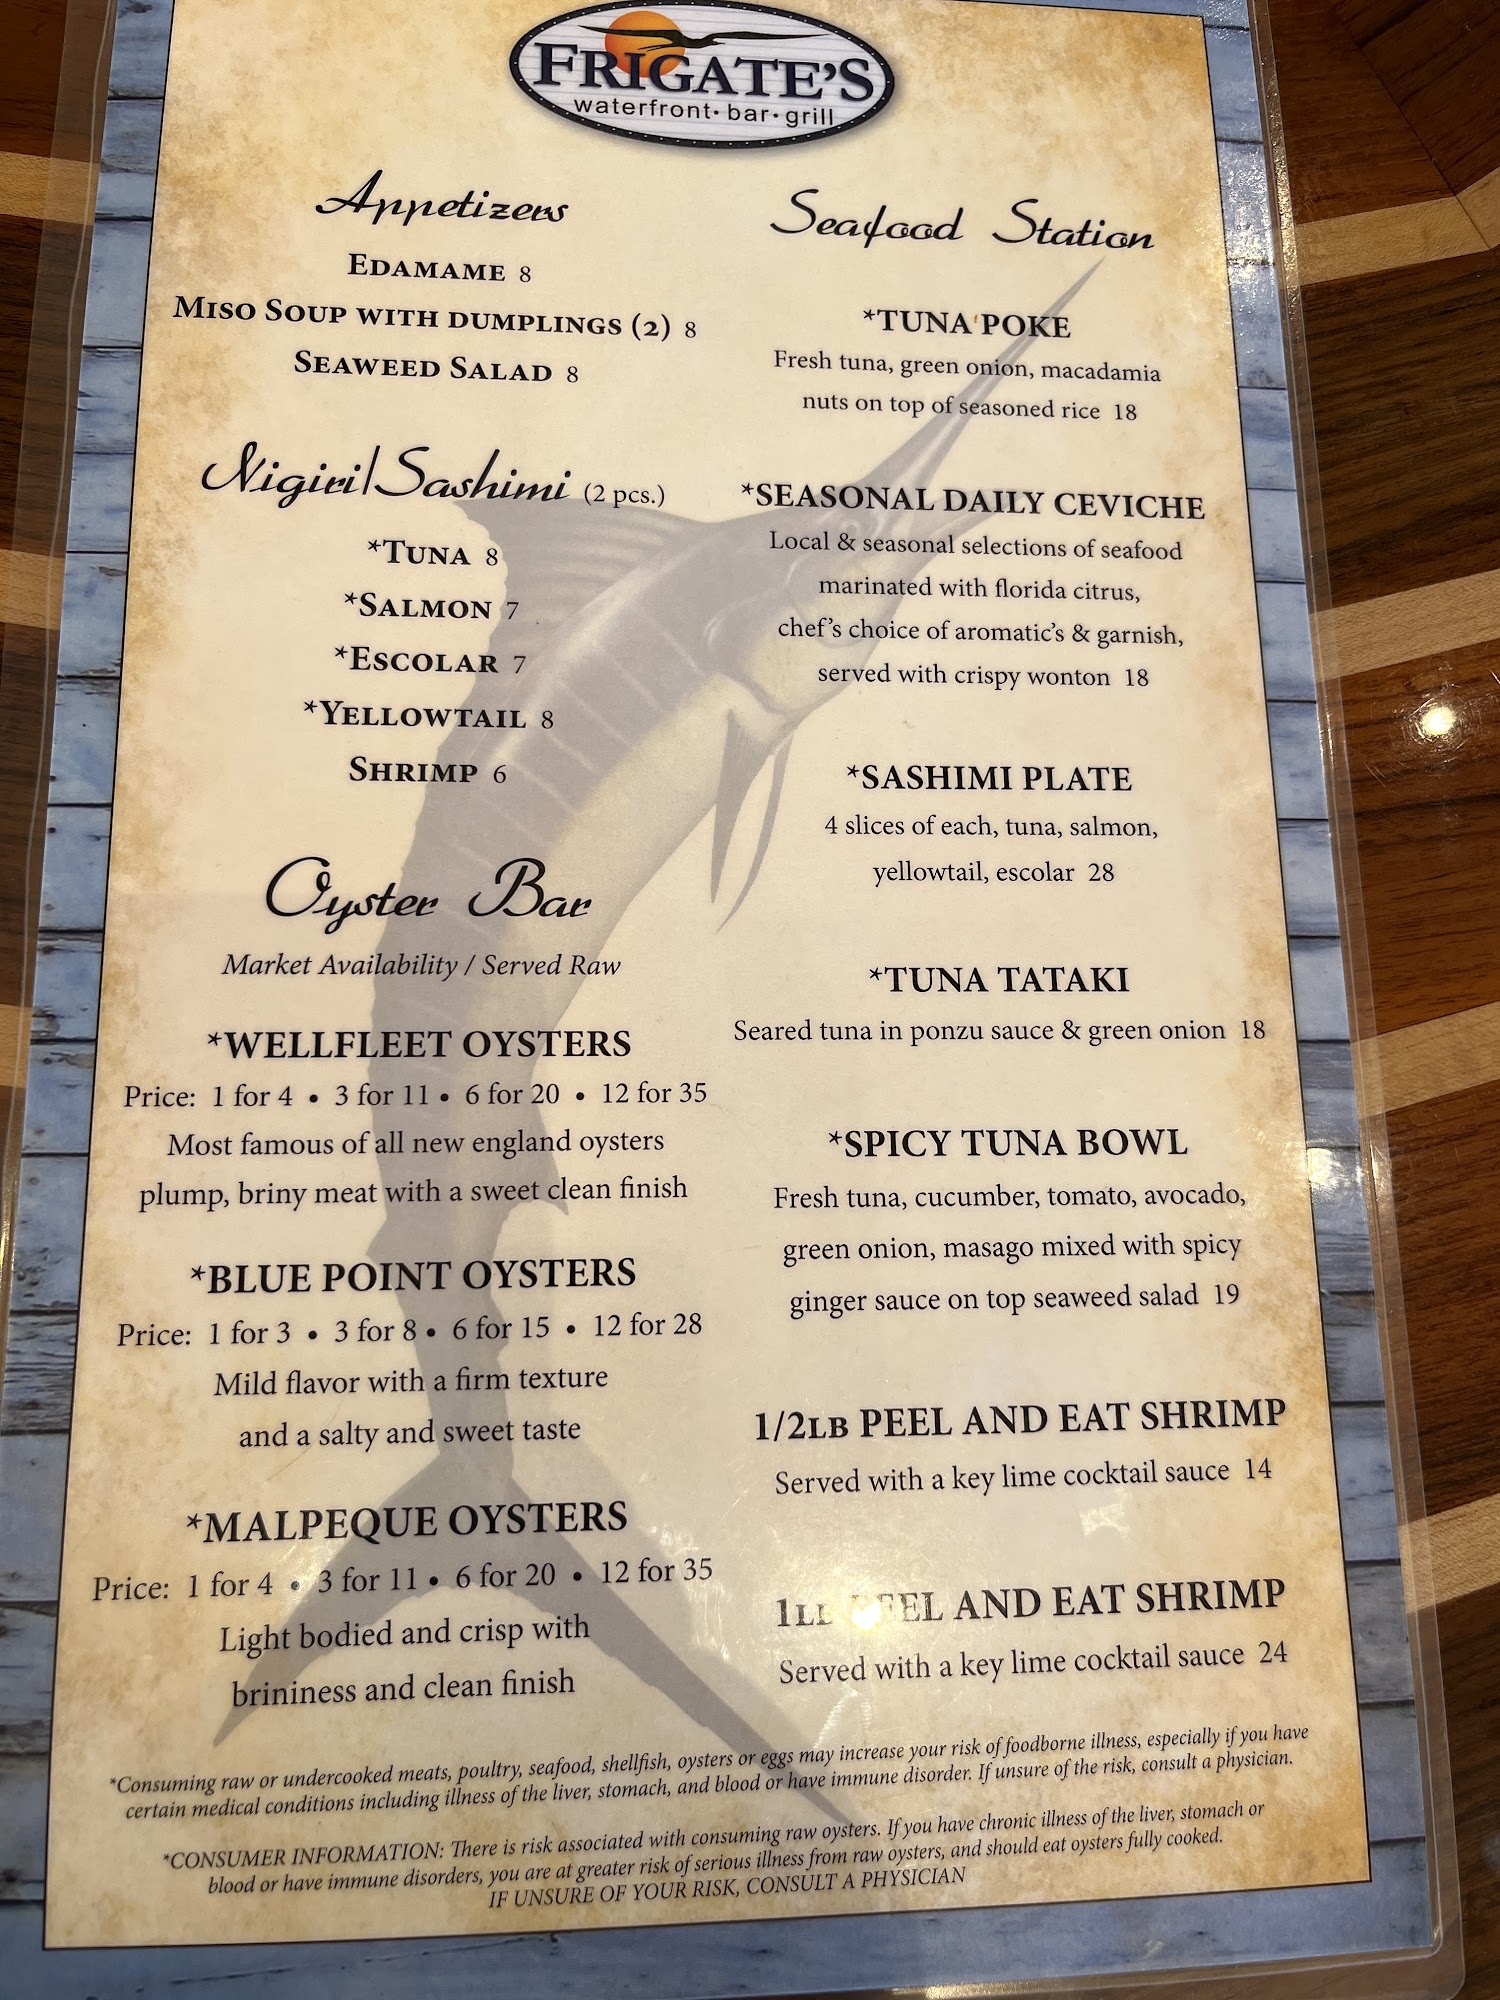 FRIGATE'S
waterfront • bar • grill
Appetizers
EDAMAME 8
MISO SOUP WITH DUMPLINGS (2) 8
SEAWEED SALAD 8
Nigiri/Sashimi (2 pcs.)
*TUNA 8
*SALMON 7
*ESCOLAR 7
*YELLOWTAIL 8
SHRIMP 6
Oyster Bar
Market Availability / Served Raw
*WELLFLEET OYSTERS
Price: 1 for 4 • 3 for 11 • 6 for 20 • 12 for 35
Most famous of all new england oysters
plump, briny meat with a sweet clean finish
*BLUE POINT OYSTERS
Price: 1 for 3 • 3 for 8 • 6 for 15 • 12 for 28
Mild flavor with a firm texture
and a salty and sweet taste
*MALPEQUE OYSTERS
Price: 1 for 4 • 3 for 11 • 6 for 20 • 12 for 35
Light bodied and crisp with
brininess and clean finish
Seafood Station
*TUNA POKE
Fresh tuna, green onion, macadamia
nuts on top of seasoned rice 18
*SEASONAL DAILY CEVICHE
Local & seasonal selections of seafood
marinated with florida citrus,
chef's choice of aromatic's & garnish,
served with crispy wonton 18
*SASHIMI PLATE
4 slices of each, tuna, salmon,
yellowtail, escolar 28
*TUNA TATAKI
Seared tuna in ponzu sauce & green onion 18
*SPICY TUNA BOWL
Fresh tuna, cucumber, tomato, avocado,
green onion, masago mixed with spicy
ginger sauce on top seaweed salad 19
1/2LB PEEL AND EAT SHRIMP
Served with a key lime cocktail sauce 14
1LB PEEL AND EAT SHRIMP
Served with a key lime cocktail sauce 24
*Consuming raw or undercooked meats, poultry, seafood, shellfish, oysters or eggs may increase your risk of foodborne illness, especially if you have
certain medical conditions including illness of the liver, stomach, and blood or have immune disorder. If unsure of the risk, consult a physician.
*CONSUMER INFORMATION: There is risk associated with consuming raw oysters. If you have chronic illness of the liver, stomach or
blood or have immune disorders, you are at greater risk of serious illness from raw oysters, and should eat oysters fully cooked.
IF UNSURE OF YOUR RISK, CONSULT A PHYSICIAN